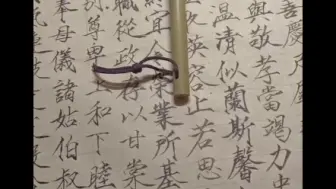 善慶尺
與敬孝當竭力忠
溫清似蘭斯馨
映容止若思
宜令榮業所基
職從政存以甘棠
尊卑上和下睦
奉母儀諸姑伯叔